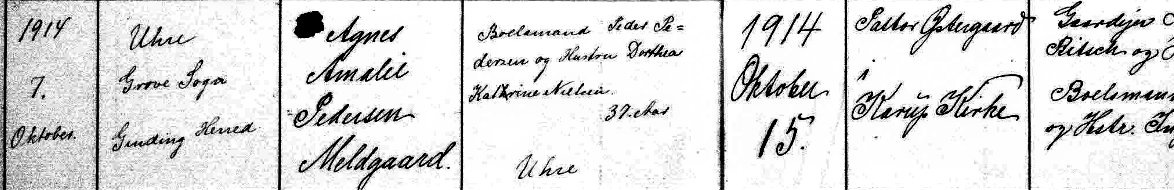 1914
7.
Oktober.
Uhre
Grove Sogn
Ginding Herred
Agnes
Amalie
Pedersen
Meldgaard.
Boelsmand Peder Pe=
dersen og Hustru Dorthea
Kathrine Nielsen.
37 Aar
Uhre
1914
Oktober
15.
Pastor Østergaard
i
Karup Kirke
Gaardejer
Bitsch og
Boelsmand
og Hstr.